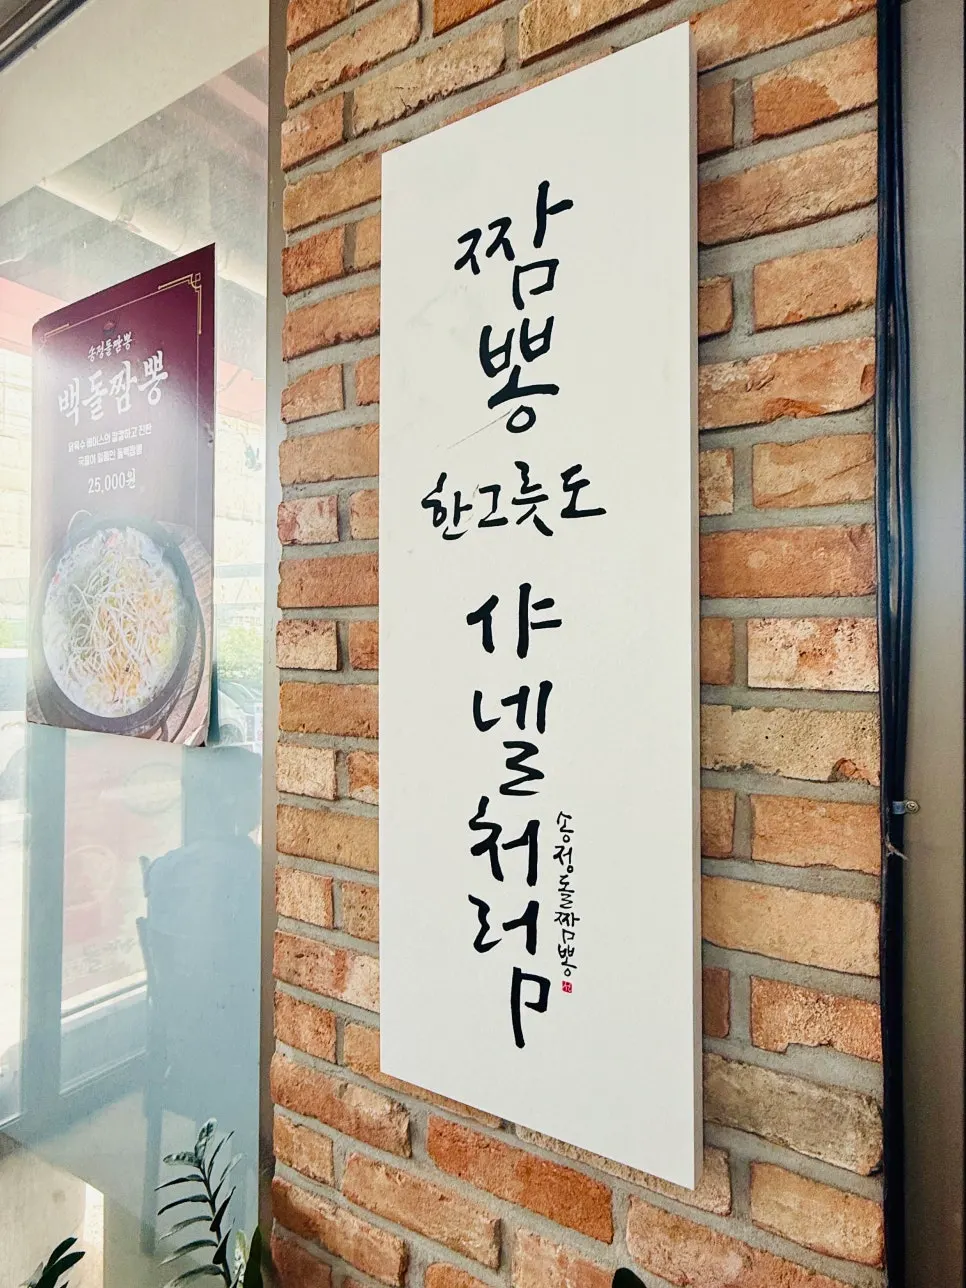 송정돌짬뽕
백돌짬뽕
닭육수 베이스의 깔끔하고 진한
국물이 일품인 돌백짬뽕
25,000원
짬
뽕
한그릇도
샤
넬
처
럼
송정돌짬뽕